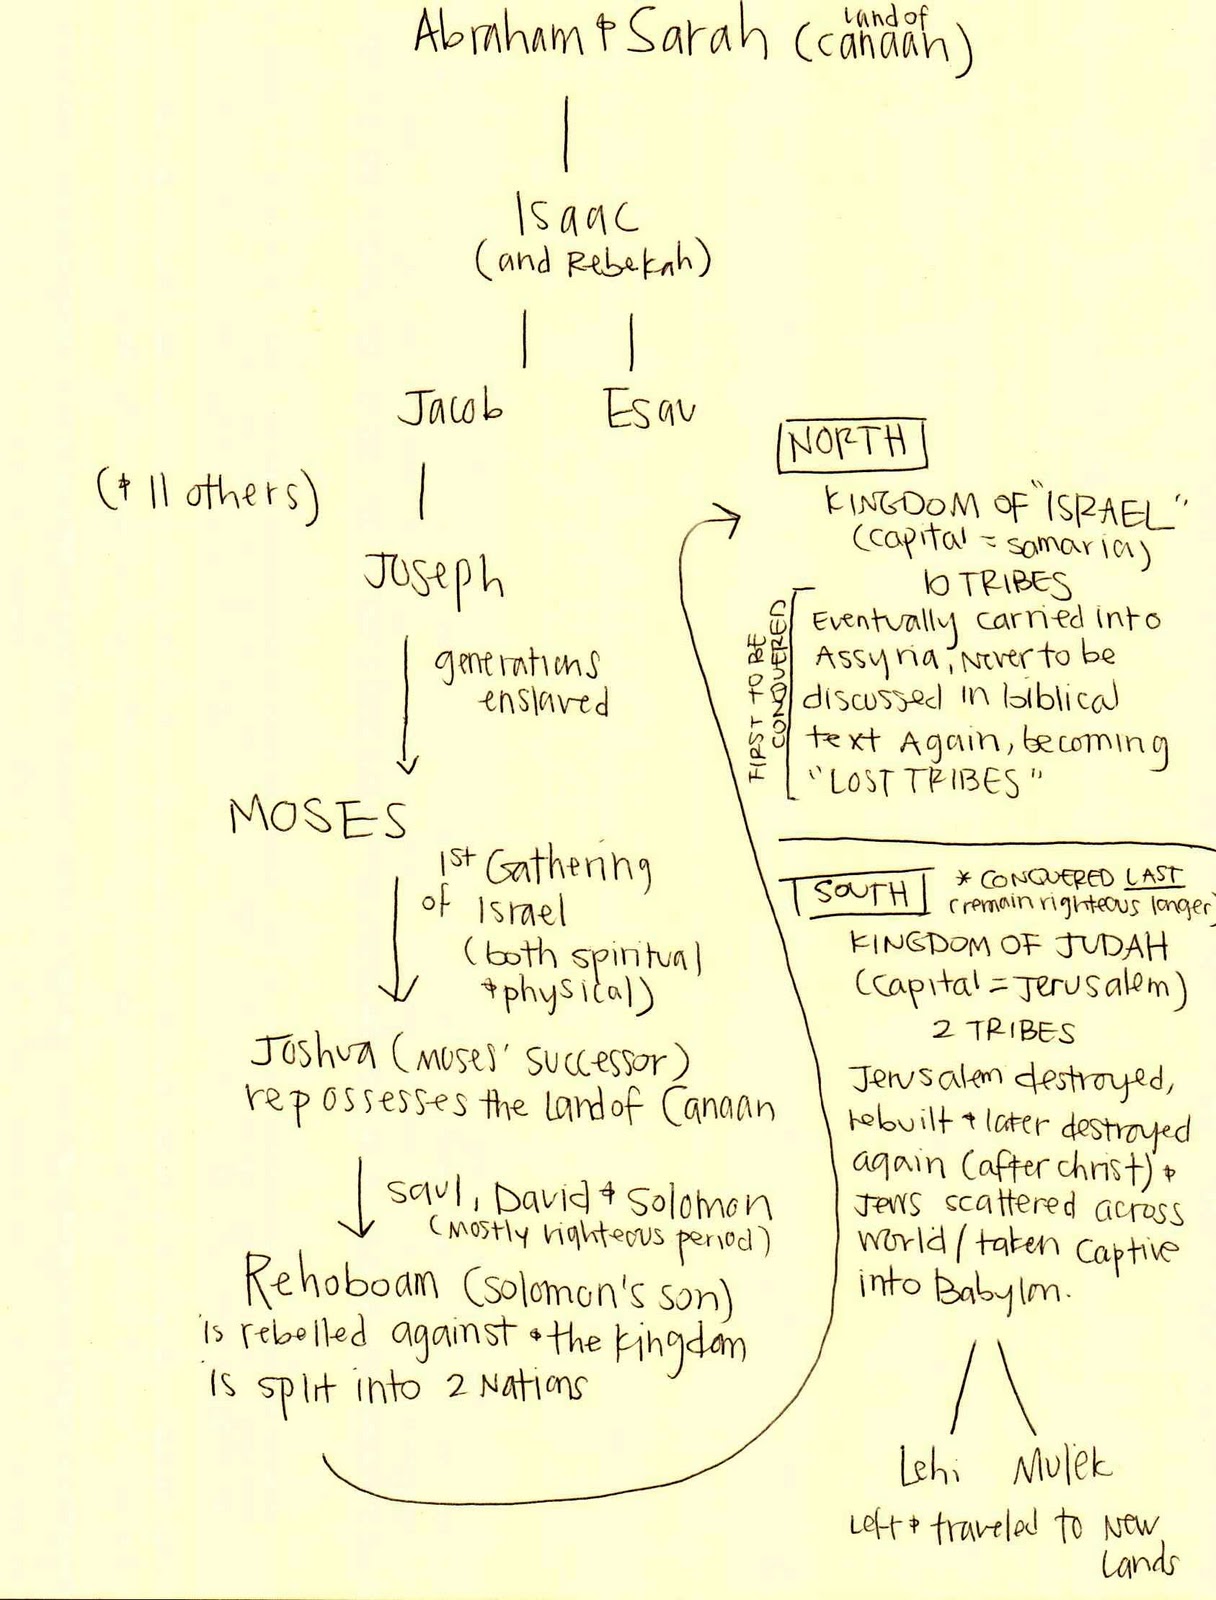 Abraham & Sarah (land of canaan)
Isaac
(and Rebekah)
Jacob Esau
(& 11 others)
Joseph
generations
enslaved
MOSES
1st Gathering
of Israel
(both spiritual
& physical)
Joshua (Moses' successor)
repossesses the Land of Canaan
Saul, David & Solomon
(mostly righteous period)
Rehoboam (Solomon's son)
is rebelled against & the kingdom
is split into 2 Nations
NORTH
KINGDOM OF "ISRAEL"
(capital = samaria)
10 TRIBES
FIRST TO BE
CONQUERED
Eventually carried into
Assyria, Never to be
discussed in biblical
text Again, becoming
"LOST TRIBES"
SOUTH
* CONQUERED LAST
(remain righteous longer)
KINGDOM OF JUDAH
(capital = Jerusalem)
2 TRIBES
Jerusalem destroyed,
rebuilt & later destroyed
again (after christ) &
Jews scattered across
world / taken captive
into Babylon.
Lehi Mulek
Left & traveled to New
Lands